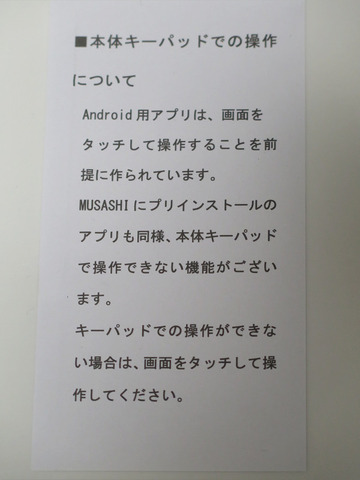 ■本体キーパッドでの操作
について
Android用アプリは、画面を
タッチして操作することを前
提に作られています。
MUSASHIにプリインストールの
アプリも同様、本体キーパッド
で操作できない機能がござい
ます。
キーパッドでの操作ができな
い場合は、画面をタッチして操
作してください。